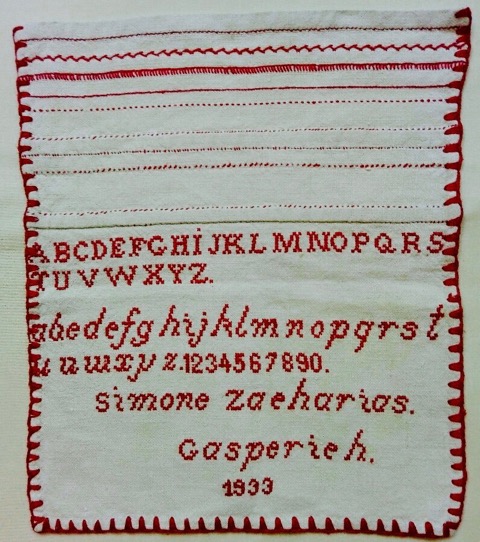 ABCDEFGHİJKLMNOPQRS
TUVWXYZ.
abcdefghijklmnopqrst
uvwxyz.1234567890.
Simone Zacharias.
Gasperich.
1933